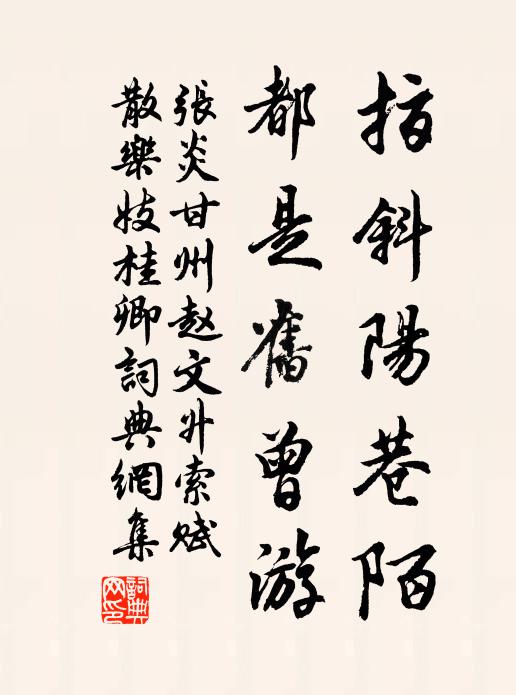 指斜陽巷陌
都是舊曾游
張炎甘州赵文升索賦
散樂妓桂卿詞典網集
詞典
网印